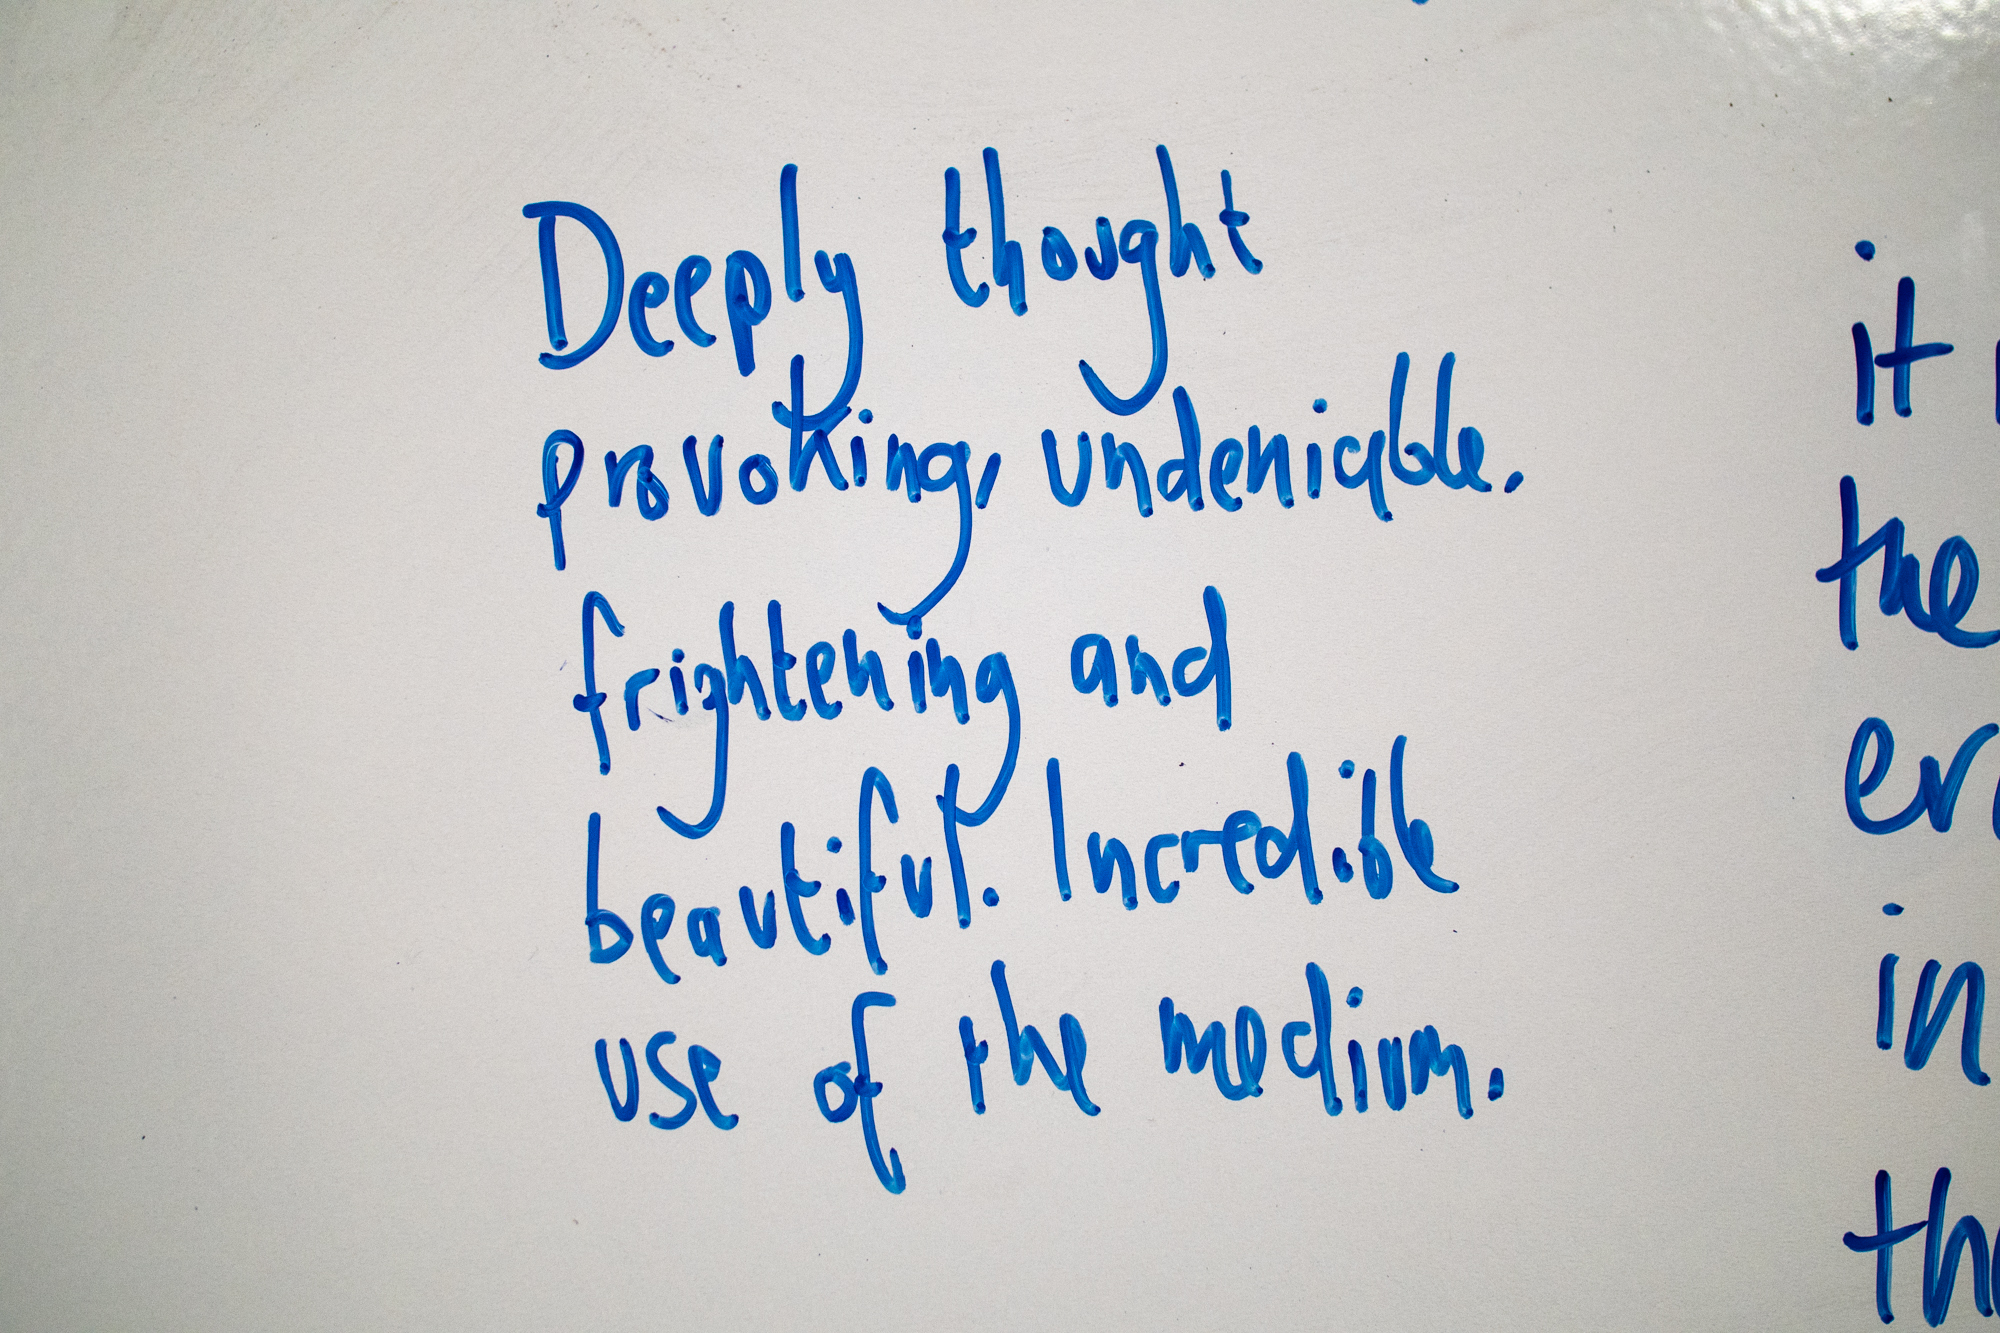 Deeply thought
provoking, undeniable.
frightening and
beautiful. Incredible
use of the medium.
it
the
in